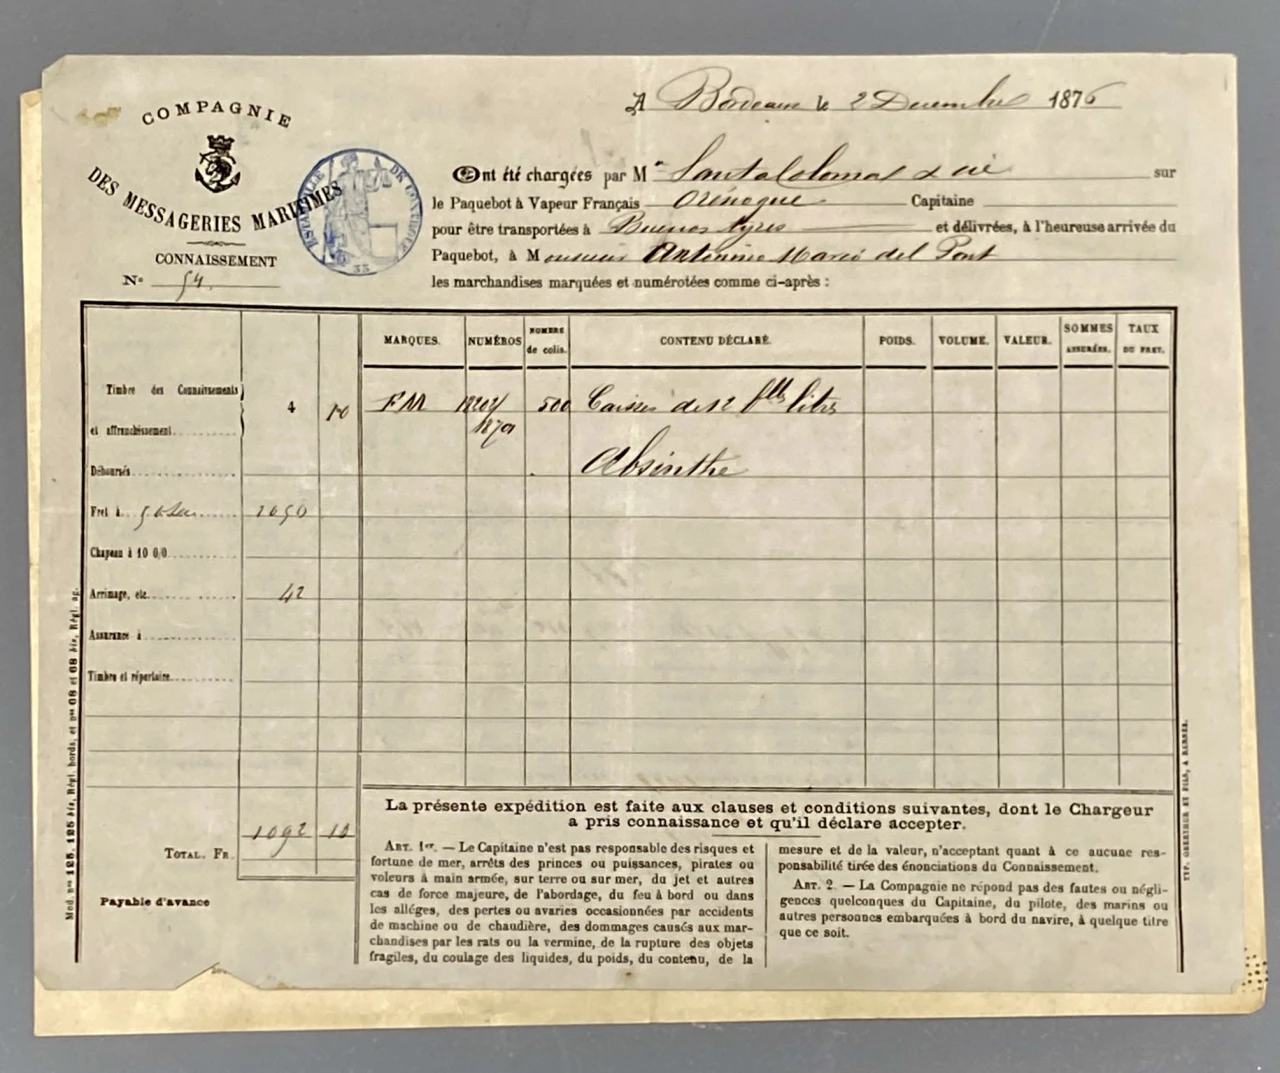 COMPAGNIE
DES MESSAGERIES MARITIMES
CONNAISSEMENT
No 54
33
A Bordeaux le 2 Decembre 1876
Ont été chargées par Mr Santa Coloma & cie sur
le Paquebot à Vapeur Français Orénoque Capitaine
pour être transportées à Buenos Ayres et délivrées, à l'heureuse arrivée du
Paquebot, à Monsieur Antonino Marcó del Pont
les marchandises marquées et numérotées comme ci-après :
MARQUES. NUMÉROS NOMBRE de colis. CONTENU DÉCLARÉ. POIDS. VOLUME. VALEUR. SOMMES ASSURÉES. TAUX DU FRET.
Timbre des Connaissements
et affranchissement 4 10
FM 500 Caisses de 12 blles litres
Absinthe
Déboursés
Fret à
Chapeau à 10 0/0
Arrimage, etc. 42
Assurance à
Timbre et répertoire
TOTAL. FR. 1092 10
Payable d'avance
La présente expédition est faite aux clauses et conditions suivantes, dont le Chargeur
a pris connaissance et qu'il déclare accepter.
ART. 1er. — Le Capitaine n'est pas responsable des risques et
fortune de mer, arrêts des princes ou puissances, pirates ou
voleurs à main armée, sur terre ou sur mer, du jet et autres
cas de force majeure, de l'abordage, du feu à bord ou dans
les alléges, des pertes ou avaries occasionnées par accidents
de machine ou de chaudière, des dommages causés aux mar-
chandises par les rats ou la vermine, de la rupture des objets
fragiles, du coulage des liquides, du poids, du contenu, de la
mesure et de la valeur, n'acceptant quant à ce aucune res-
ponsabilité tirée des énonciations du Connaissement.
ART. 2. — La Compagnie ne répond pas des fautes ou négli-
gences quelconques du Capitaine, du pilote, des marins ou
autres personnes embarquées à bord du navire, à quelque titre
que ce soit.
Mod. nos 125, 125 bis, Régl. bords, et nos 68 et 68 bis, Régl. ag.
TYP. OBERTHUR ET FILS, A RENNES.